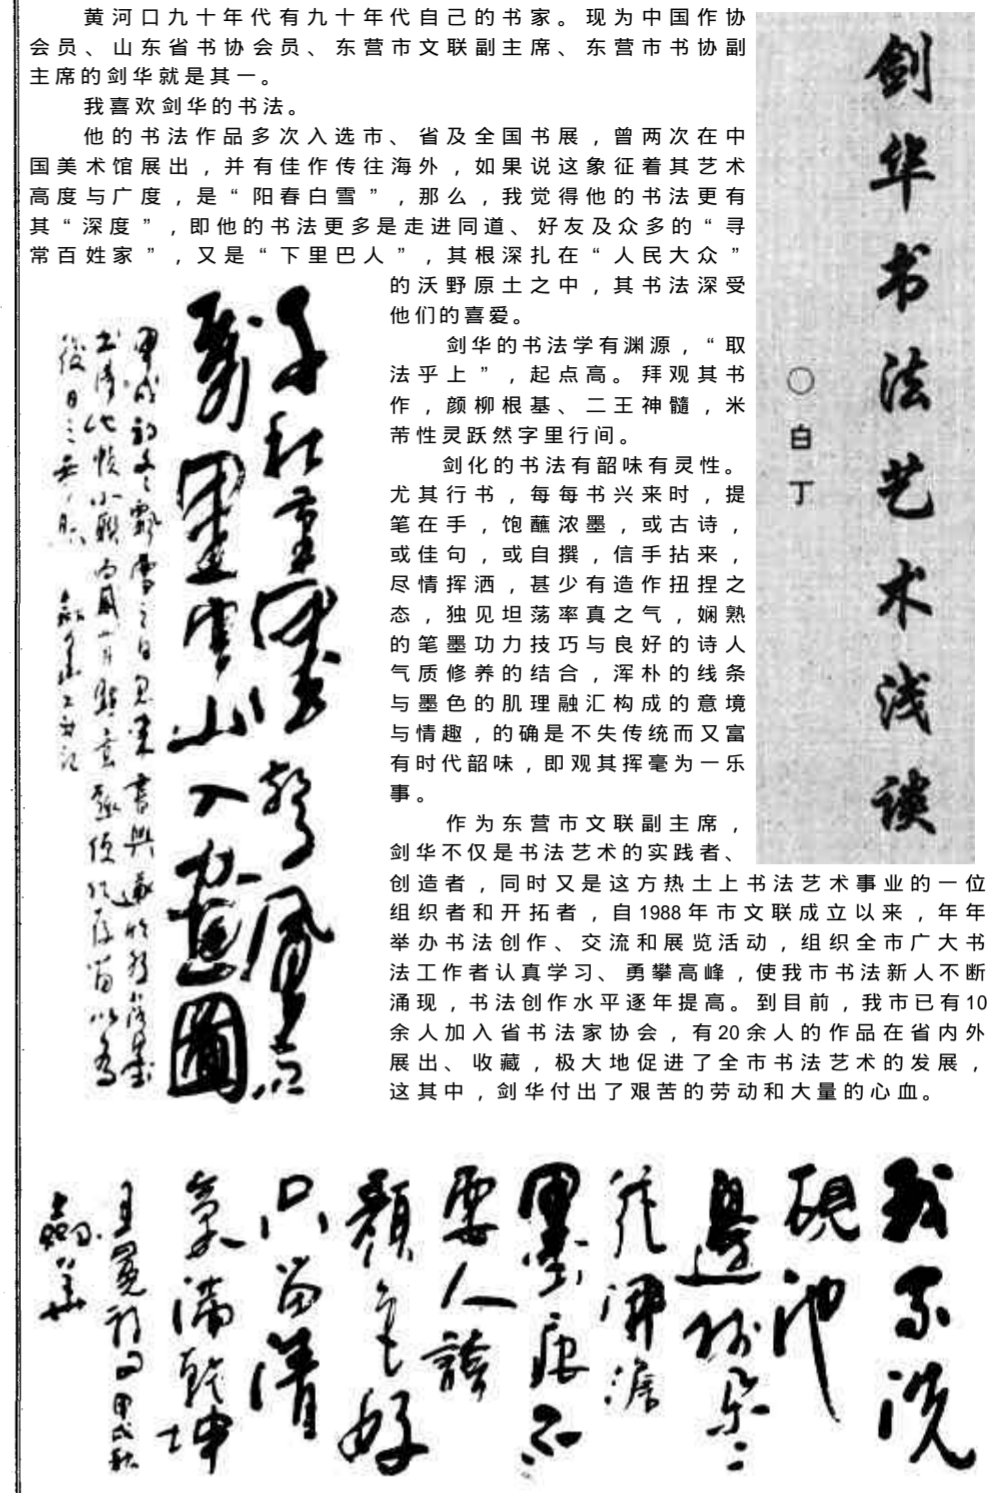 剑华书法艺术浅谈
○白丁
黄河口九十年代有九十年代自己的书家。现为中国作协
会员、山东省书协会员、东营市文联副主席、东营市书协副
主席的剑华就是其一。
我喜欢剑华的书法。
他的书法作品多次入选市、省及全国书展，曾两次在中
国美术馆展出，并有佳作传往海外，如果说这象征着其艺术
高度与广度，是“阳春白雪”，那么，我觉得他的书法更有
其“深度”，即他的书法更多是走进同道、好友及众多的“寻
常百姓家”，又是“下里巴人”，其根深扎在“人民大众”
的沃野原土之中，其书法深受
他们的喜爱。
剑华的书法学有渊源，“取
法乎上”，起点高。拜观其书
作，颜柳根基、二王神髓，米
芾性灵跃然字里行间。
剑化的书法有韶味有灵性。
尤其行书，每每书兴来时，提
笔在手，饱蘸浓墨，或古诗，
或佳句，或自撰，信手拈来，
尽情挥洒，甚少有造作扭捏之
态，独见坦荡率真之气，娴熟
的笔墨功力技巧与良好的诗人
气质修养的结合，浑朴的线条
与墨色的肌理融汇构成的意境
与情趣，的确是不失传统而又富
有时代韶味，即观其挥毫为一乐
事。
作为东营市文联副主席，
剑华不仅是书法艺术的实践者、
创造者，同时又是这方热土上书法艺术事业的一位
组织者和开拓者，自1988年市文联成立以来，年年
举办书法创作、交流和展览活动，组织全市广大书
法工作者认真学习、勇攀高峰，使我市书法新人不断
涌现，书法创作水平逐年提高。到目前，我市已有10
余人加入省书法家协会，有20余人的作品在省内外
展出、收藏，极大地促进了全市书法艺术的发展，
这其中，剑华付出了艰苦的劳动和大量的心血。
雲山入畫圖
我家洗
硯池
邊樹朵〻
花開澹
墨痕不
要人誇
顏色好
只留清
氣滿乾坤
王冕詩句甲戌秋
劍華